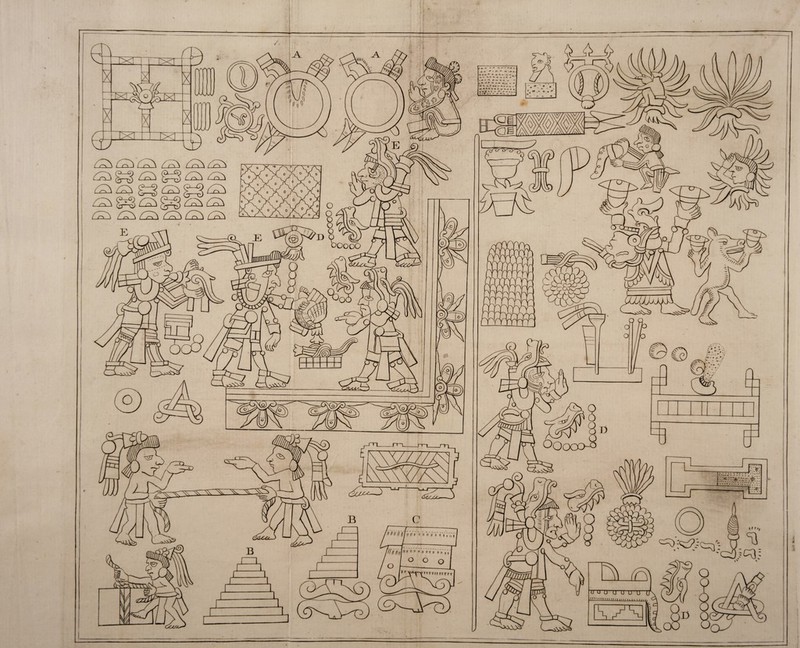 A
A
E
E
E
D
D
B
B
C
D